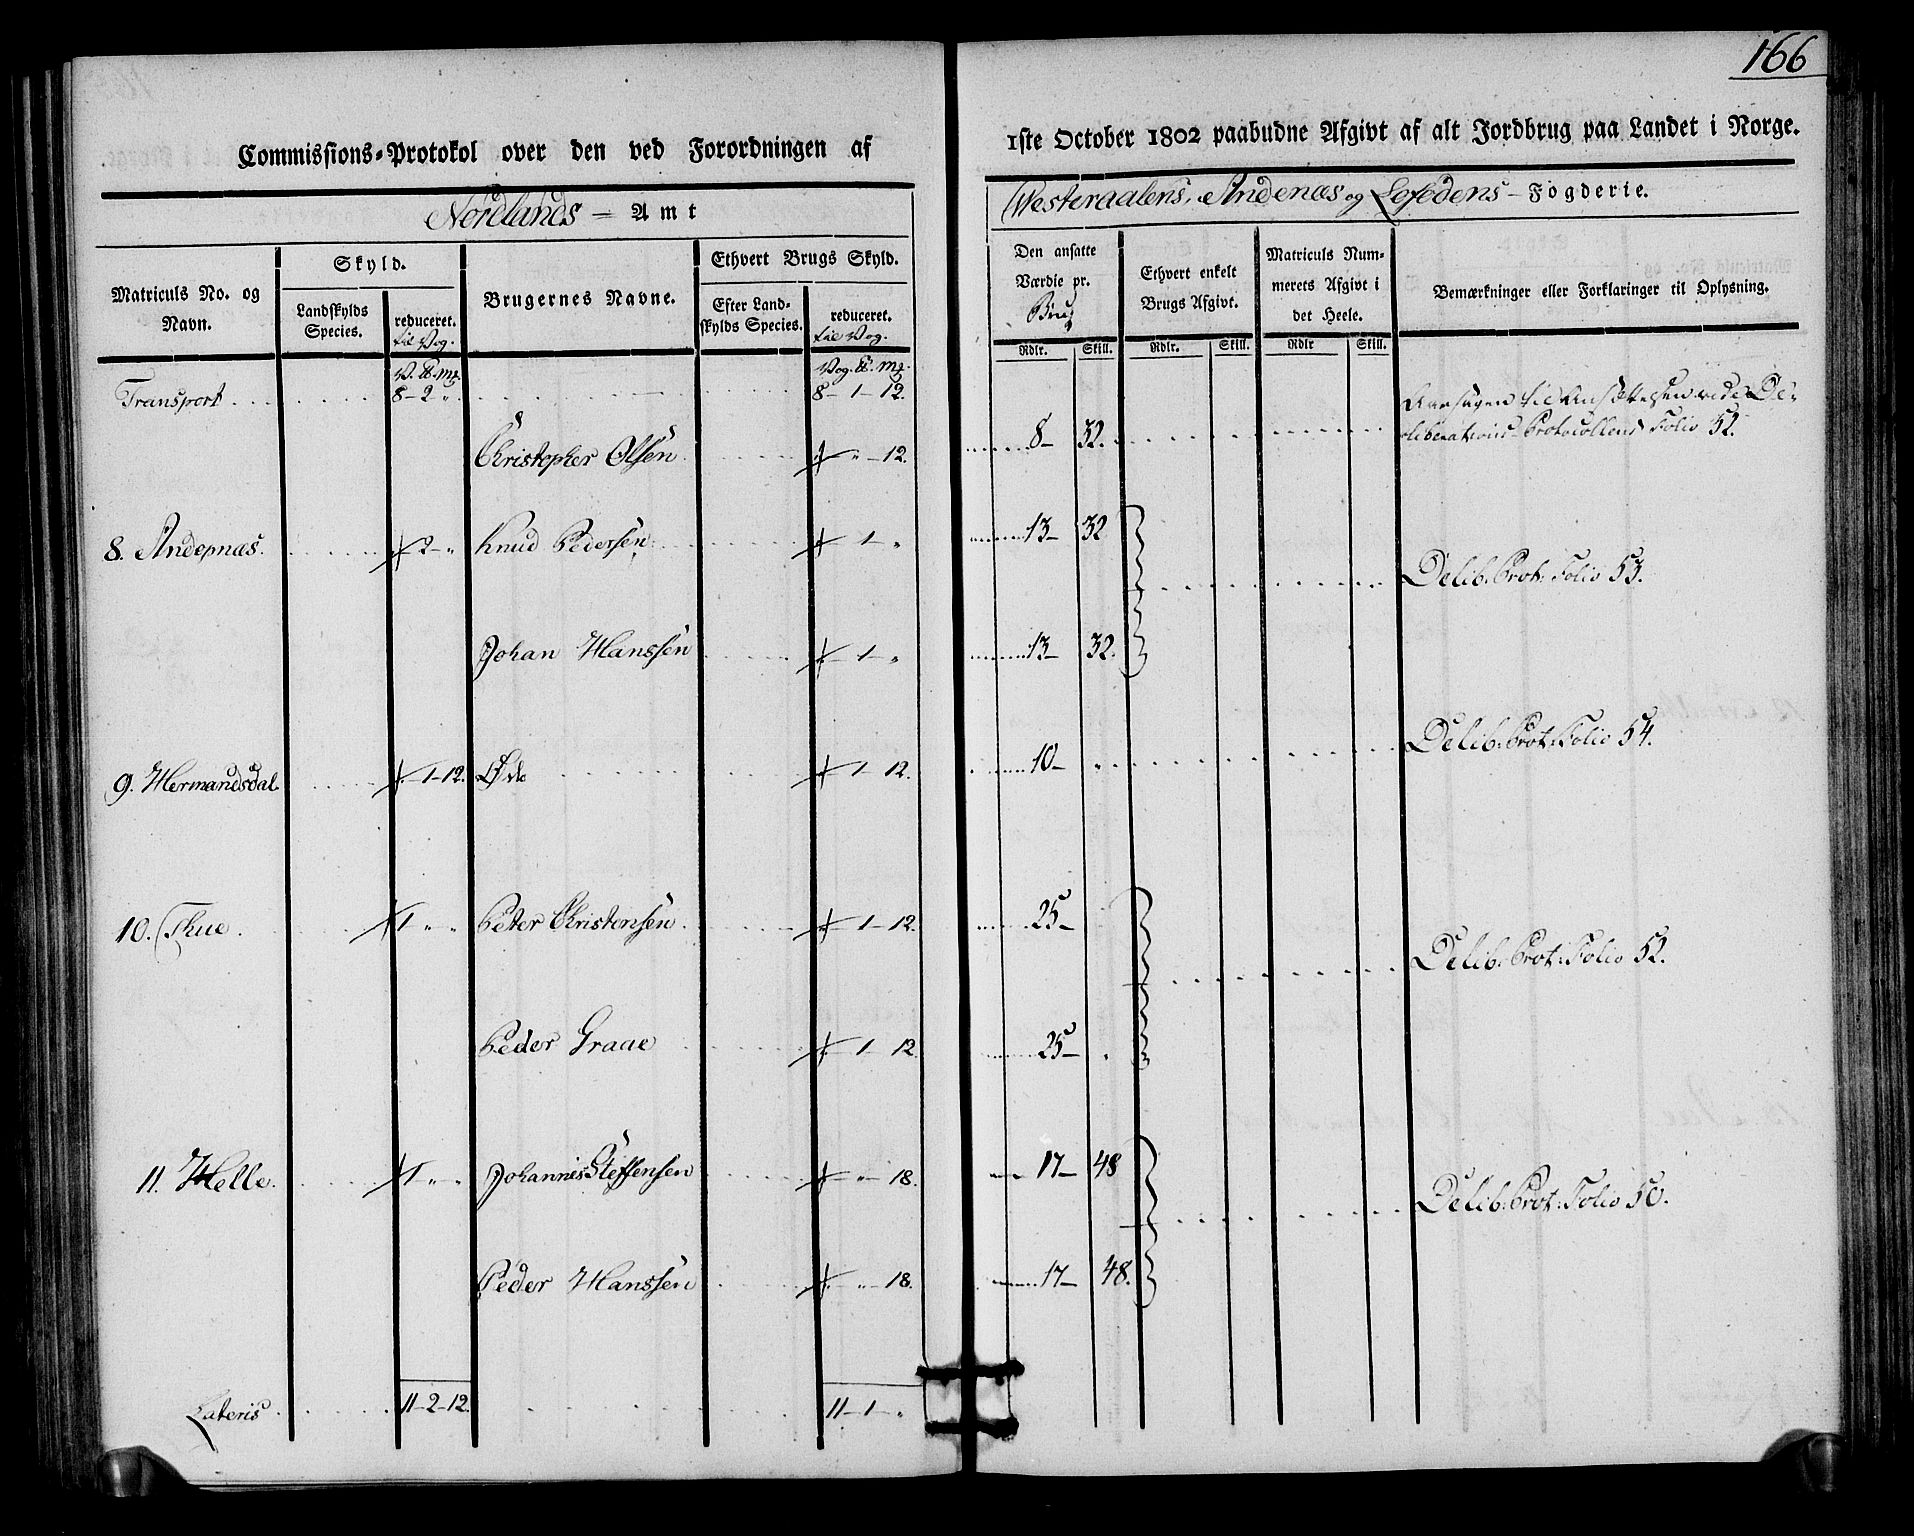 166
Commissions-Protokol over den ved Forordningen af
1ste October 1802 paabudne Afgivt af alt Jordbrug paa Landet i Norge.
Nordlands Amt
Westeraalens, Andenæs og Lofodens Fogderie.
Matriculs No. og Navn.
Skyld.
Landskylds Species.
reduceret.
til Vog.
Brugernes Navne.
Ethvert Brugs Skyld.
Efter Landskylds Species.
reduceret.
til Vog.
Den ansatte Værdie pr.
Brug
Rdlr. Skill.
Ethvert enkelt Brugs Afgivt.
Rdlr. Skill.
Matriculs Nummerets Afgivt i det Heele.
Rdlr Skill.
Bemærkninger eller Forklaringer til Oplysning.
V. ℔. mƶ. Vog. ℔. mƶ.
Transport 8-2 „ 8-1-12.
Aarsagen til Ansættelsen vide De-
liberations-Protocollens Folio 52.
Christopher Olsen „-12. 8- 32.
8. Andepnæs. 2- „ Knud Pedersen 1- „ 13- 32
Delib. Prot: Folio 53.
Johan Hanssen 1- „ 13- 32.
9. Hermandsdal. 1-12. Øde 1-12. 10- Delib. Prot: Folio 54.
10. Thue. 1 „ „ Peter Christensen 1-12. 25-
Delib. Prot: Folio 52.
Peder Graae 1-12 25-
11. Helle. 1 „ „ Johannis Steffensen „-18. 17- 48
Delib. Prot: Folio 50.
Peder Hanssen „-18. 17- 48.
Lateris 11-2-12. 11-1-„